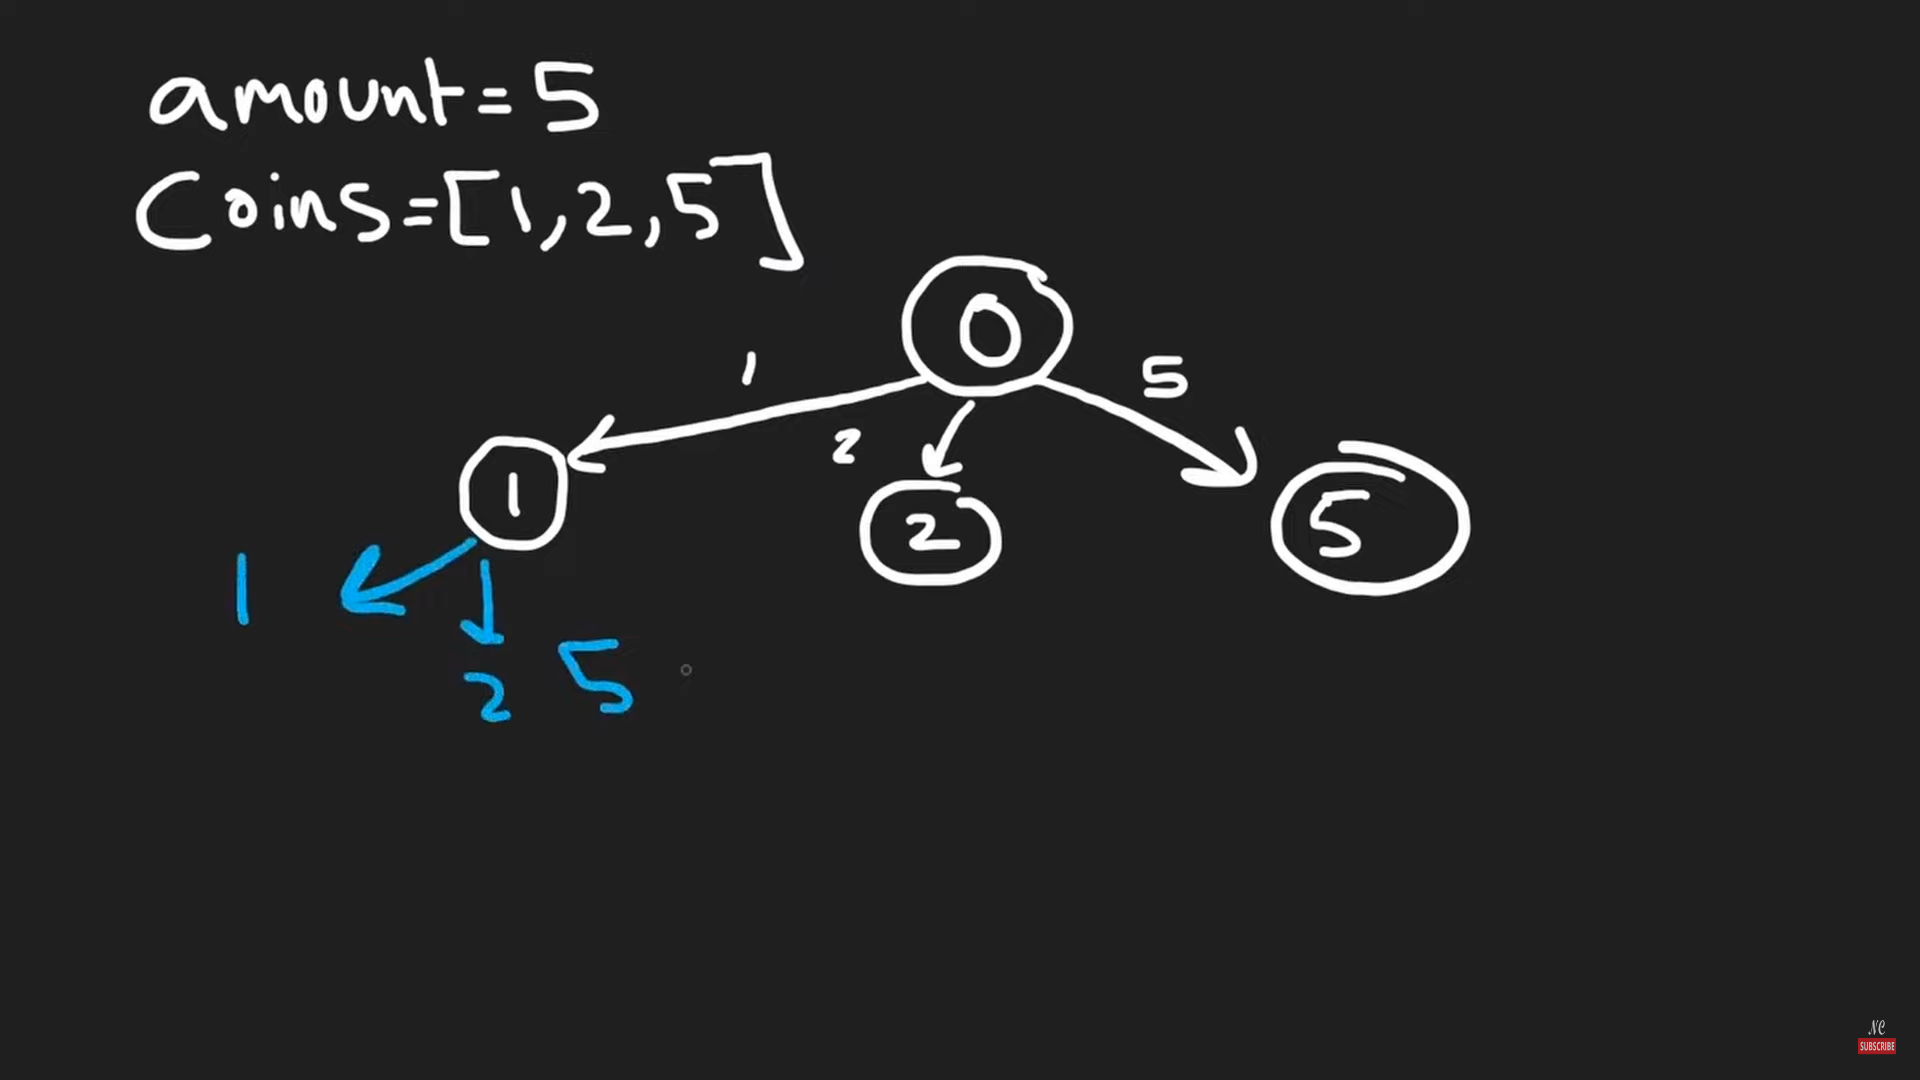 amount=5
Coins=[1,2,5]
0
1
5
2
1
2
5
1
2
5
NC
SUBSCRIBE